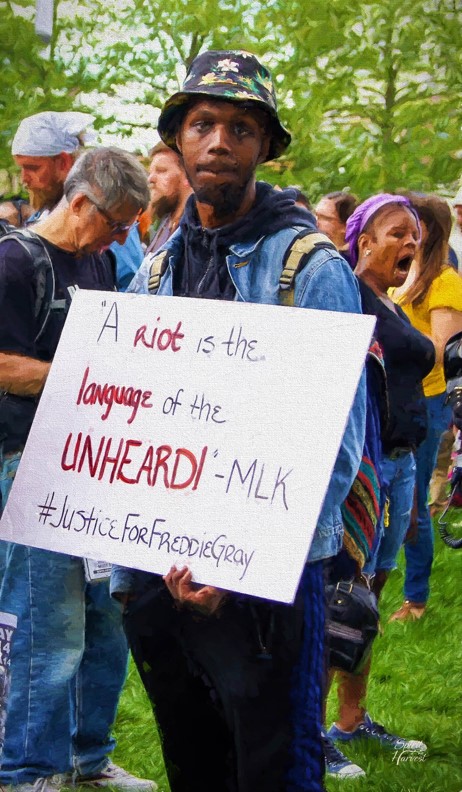 "A RIOT is the
language of the
UNHEARD!"-MLK
#JusticeForFreddieGray
Harvest